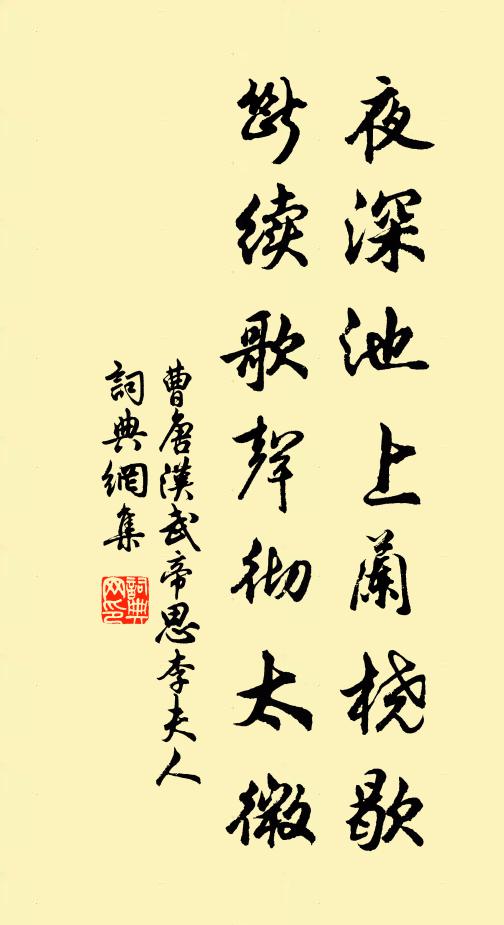 夜深池上蘭桡歇
斷续歌聲彻太微
曹唐漢武帝思李夫人
詞典網集
詞典网印